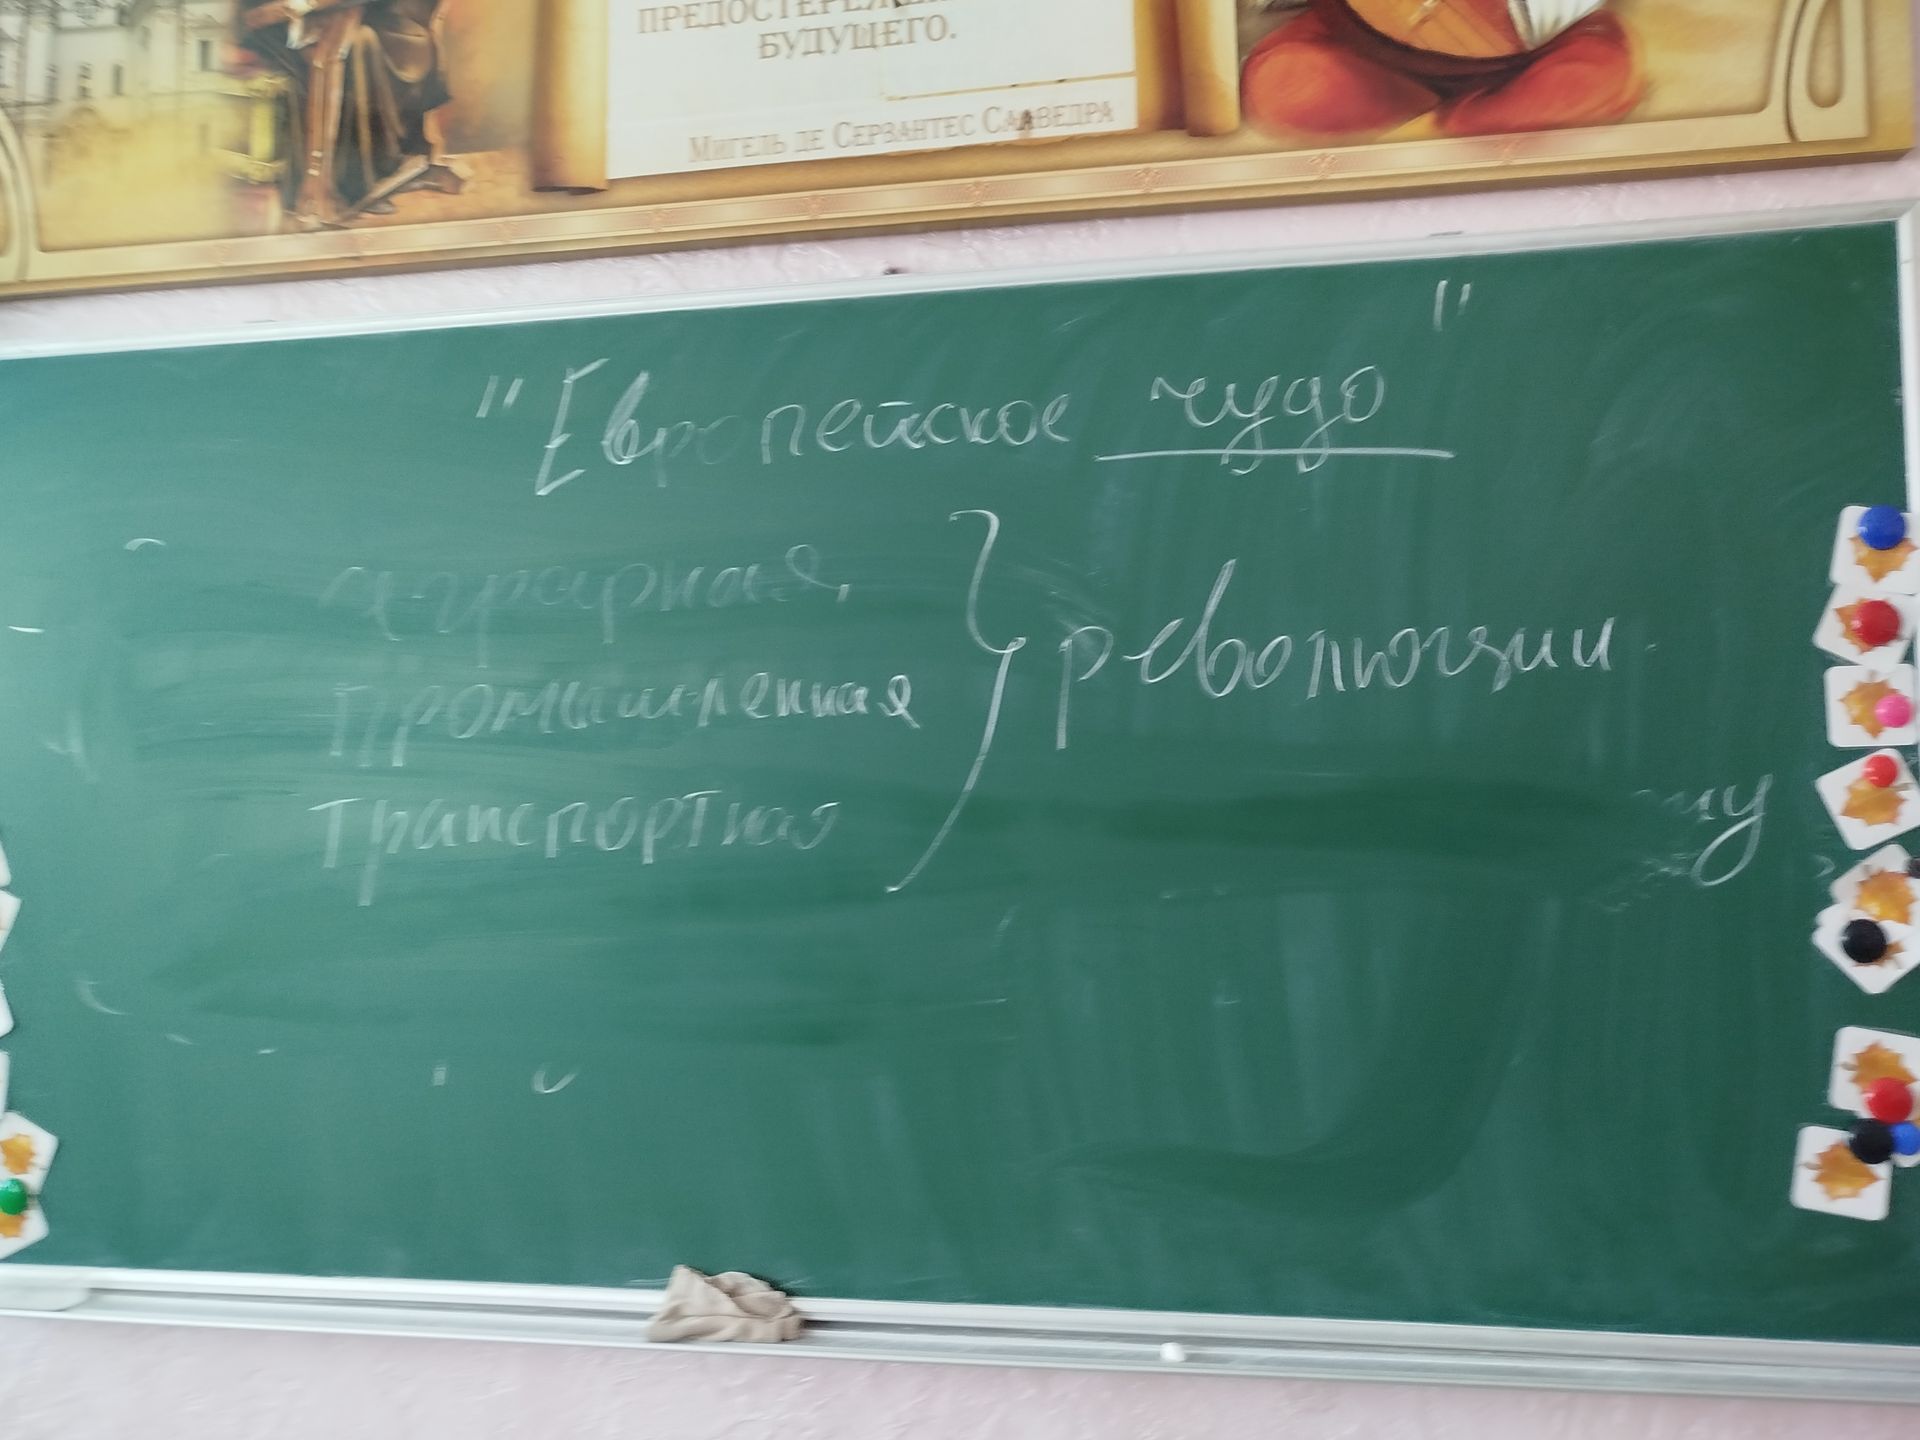 БУДУЩЕГО.
Мигель де Сервантес Сааведра
"Европейское чудо"
аграрная
промышленная
транспортная
} революции